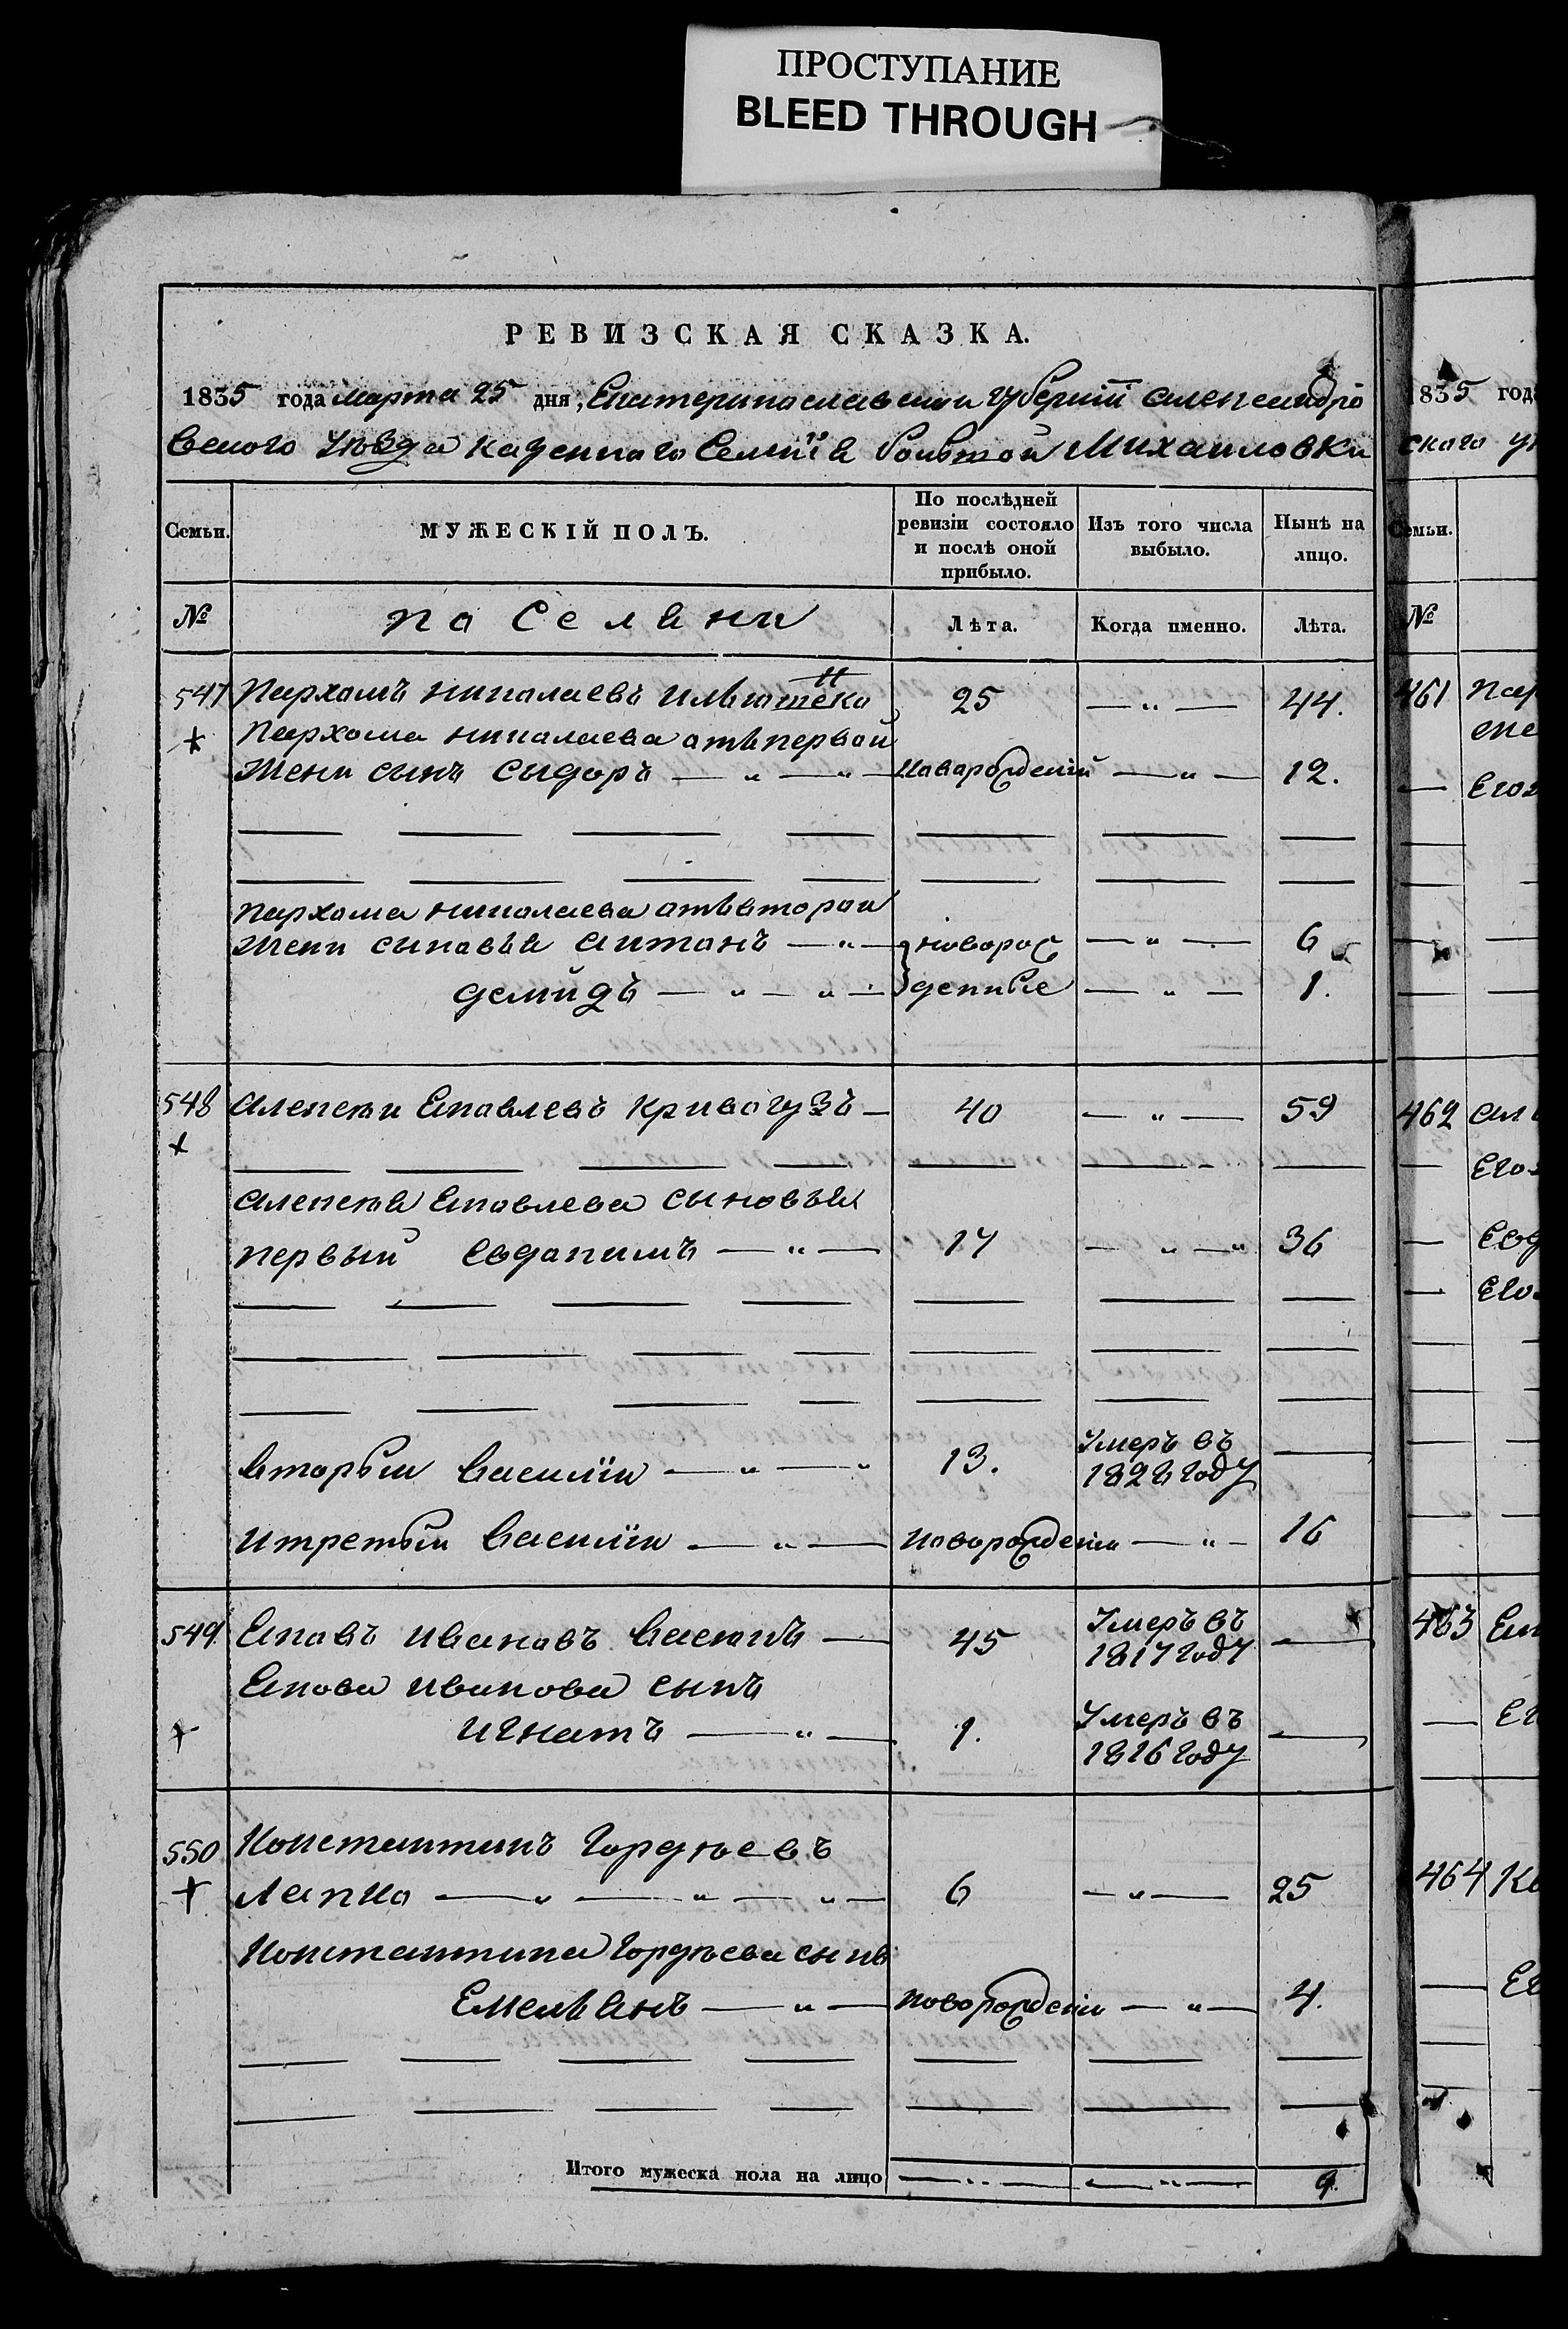 ПРОСТУПАНИЕ
BLEED THROUGH
РЕВИЗСКАЯ СКАЗКА.
1835 года марта 25 дня, Екатеринославской губернiи Александро
вского уѣзда казенного Селенiя Большой Михаиловки
Семьи.
МУЖЕСКІЙ ПОЛЪ.
По послѣдней ревизіи состояло и послѣ оной прибыло.
Изъ того числа выбыло.
Нынѣ на лицо.
№
поселяни
Лѣта.
Когда именно.
Лѣта.
547 Пархомъ Николаевъ 25 — „ — 44.
Пархома Николаева отъ первой
Жени сынъ Сыдоръ — „ — „ — Новорожденій — „ — 12.
Пархома Николаева отъ второй
Жени сыновья Антонъ — „ — новорож — „ — 6
Демидъ — „ — „ — денные — „ — 1.
548 Алексѣи Яковлевъ Кривогузъ — 40 — „ — 59
Алексѣя Яковлева сыновья
первый Евдокимъ — „ — 17 — „ — „ 36
вторый Василiи — „ — „ 13. Умеръ въ 1828 году —
итретый Василiи — „ — Новорожденiи — „ — 16
549 Яковъ Ивановъ Васюкъ — 45 Умеръ въ 1817 году —
Якова Иванова сынъ
Игнатъ — „ — 1. Умеръ въ 1816 году —
550 Константинъ Гордѣевъ
Лапко — „ — „ — „ — 6 — „ — 25
Константина Гордѣева сынъ
Емельянъ — „ — Новорожденiи — „ — 4.
Итого мужеска пола на лицо — „ — — „ — 9.
1835 год
ского у
Семьи.
№
461 Пар
462
Его
Евд
Его
463
464